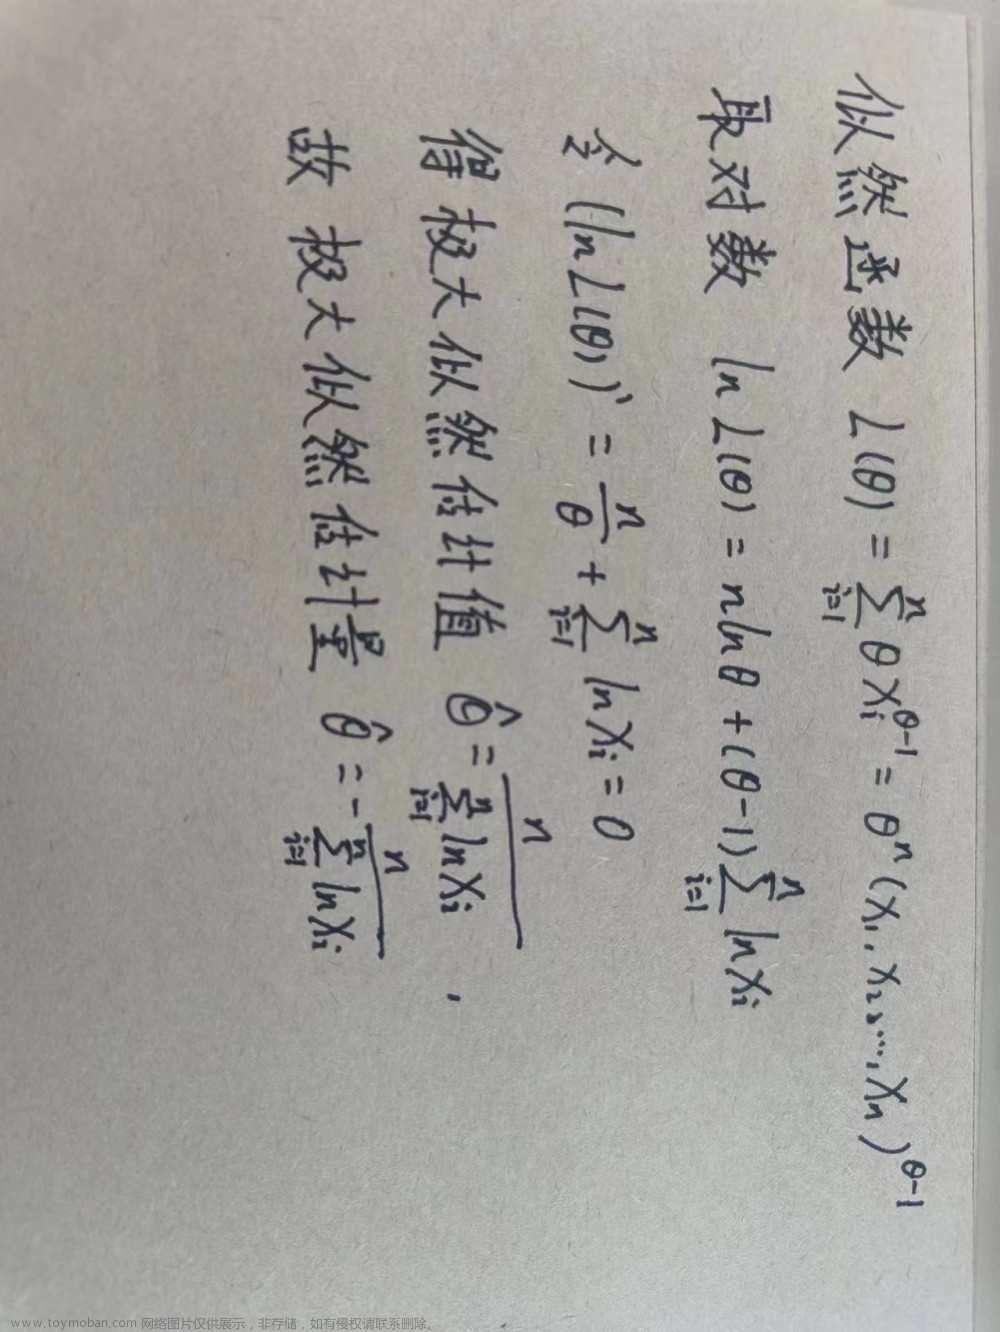 似然函数 L(θ) = ∑_{i=1}^{n} θx_i^{θ-1} = θ^n (x_1, x_2, …, x_n)^{θ-1}
取对数 ln L(θ) = n ln θ + (θ-1) ∑_{i=1}^{n} ln x_i
令 (ln L(θ))' = n/θ + ∑_{i=1}^{n} ln x_i = 0
得 极大似然估计值 θ̂ = n / ∑_{i=1}^{n} ln x_i ,
故 极大似然估计量 θ̂ = - n / ∑_{i=1}^{n} ln X_i
www.toymoban.com 网络图片仅供展示，非存储，如有侵权请联系删除。